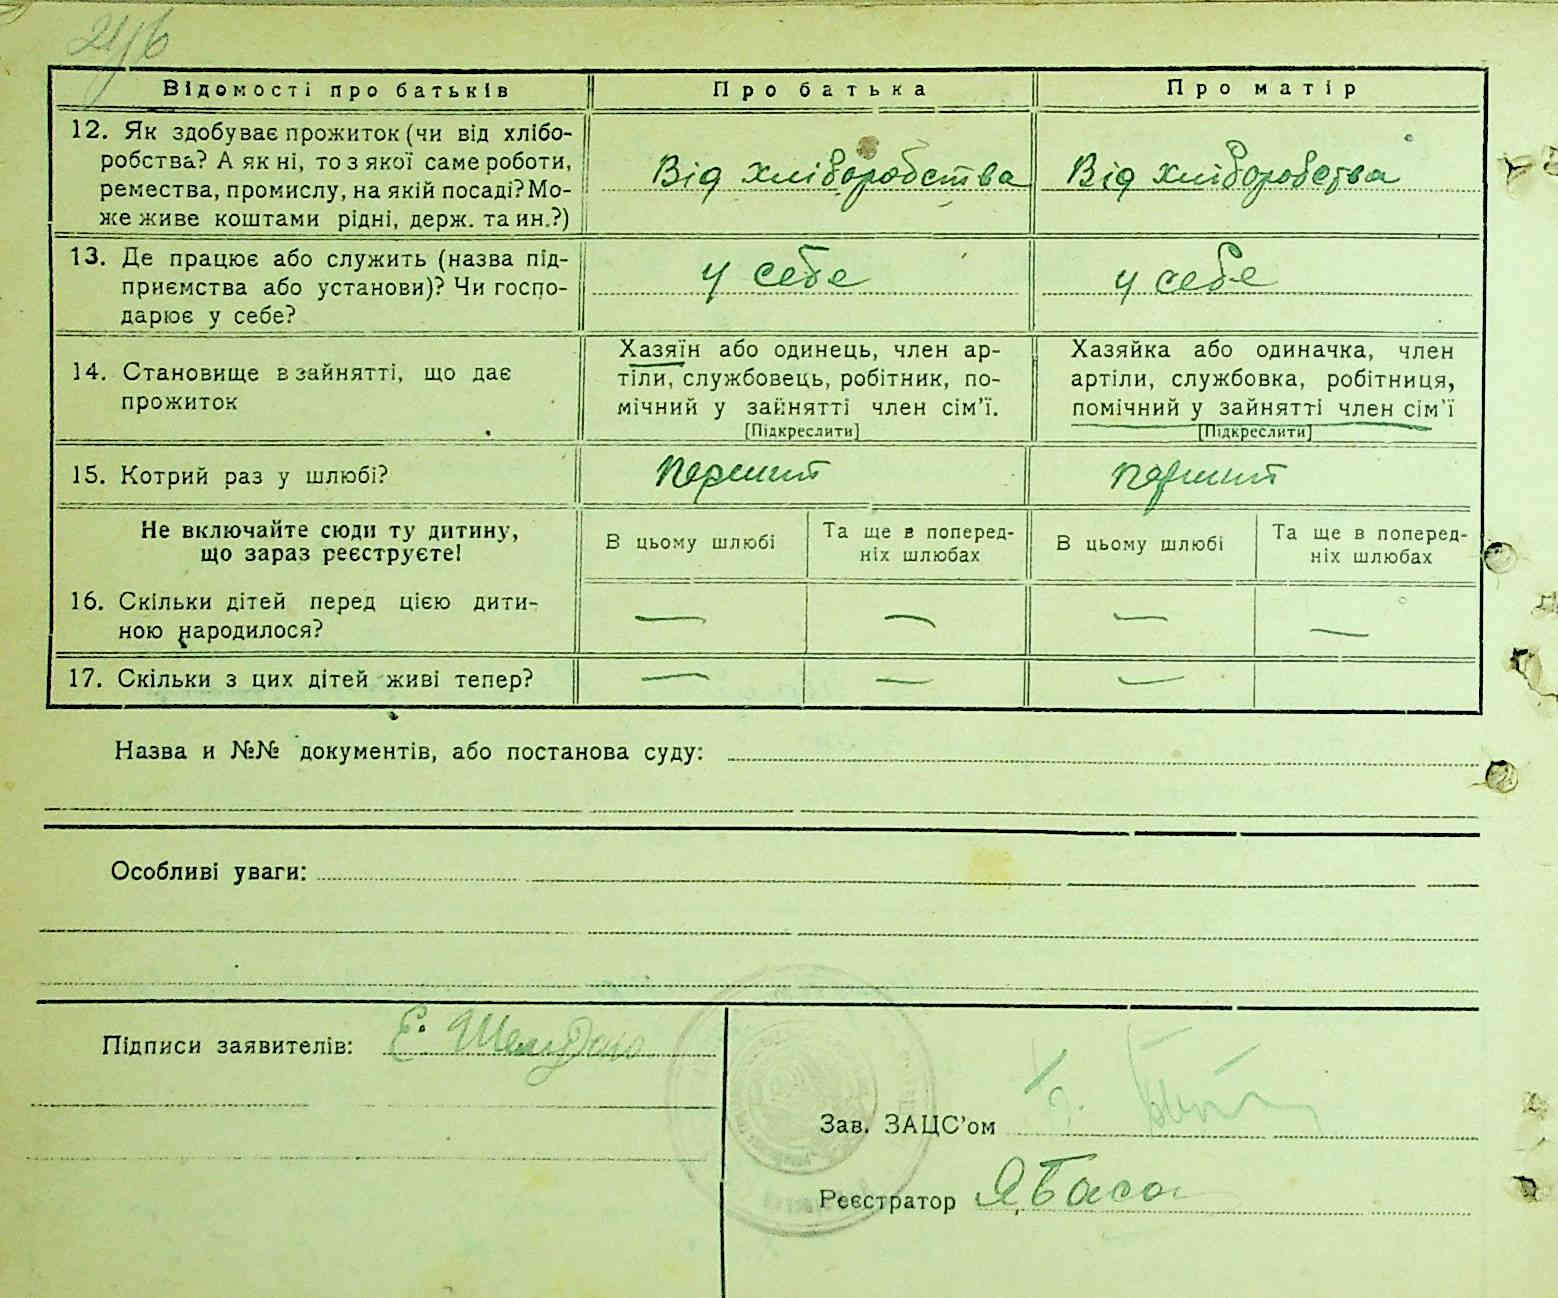 Відомості про батьків
Про батька
Про матір
12. Як здобуває прожиток (чи від хлібо-
робства? А як ні, то з якої саме роботи,
ремества, промислу, на якій посаді? Мо-
же живе коштами рідні, держ. та ин.?)
Від хліборобства
Від хліборобства
13. Де працює або служить (назва під-
приємства або установи)? Чи госпо-
дарює у себе?
у себе
у себе
14. Становище в зайнятті, що дає
прожиток
Хазяїн або одинець, член ар-
тіли, службовець, робітник, по-
мічний у зайнятті член сім'ї.
[Підкреслити]
Хазяйка або одиначка, член
артіли, службовка, робітниця,
помічний у зайнятті член сім'ї
[Підкреслити]
15. Котрий раз у шлюбі?
перший
перший
Не включайте сюди ту дитину,
що зараз реєструєте!
В цьому шлюбі
Та ще в поперед-
ніх шлюбах
В цьому шлюбі
Та ще в поперед-
ніх шлюбах
16. Скільки дітей перед цією дити-
ною народилося?
—
—
—
—
17. Скільки з цих дітей живі тепер?
—
—
—
Назва и №№ документів, або постанова суду:
Особливі уваги:
Підписи заявителів: Є.
Зав. ЗАЦС'ом
Реєстратор